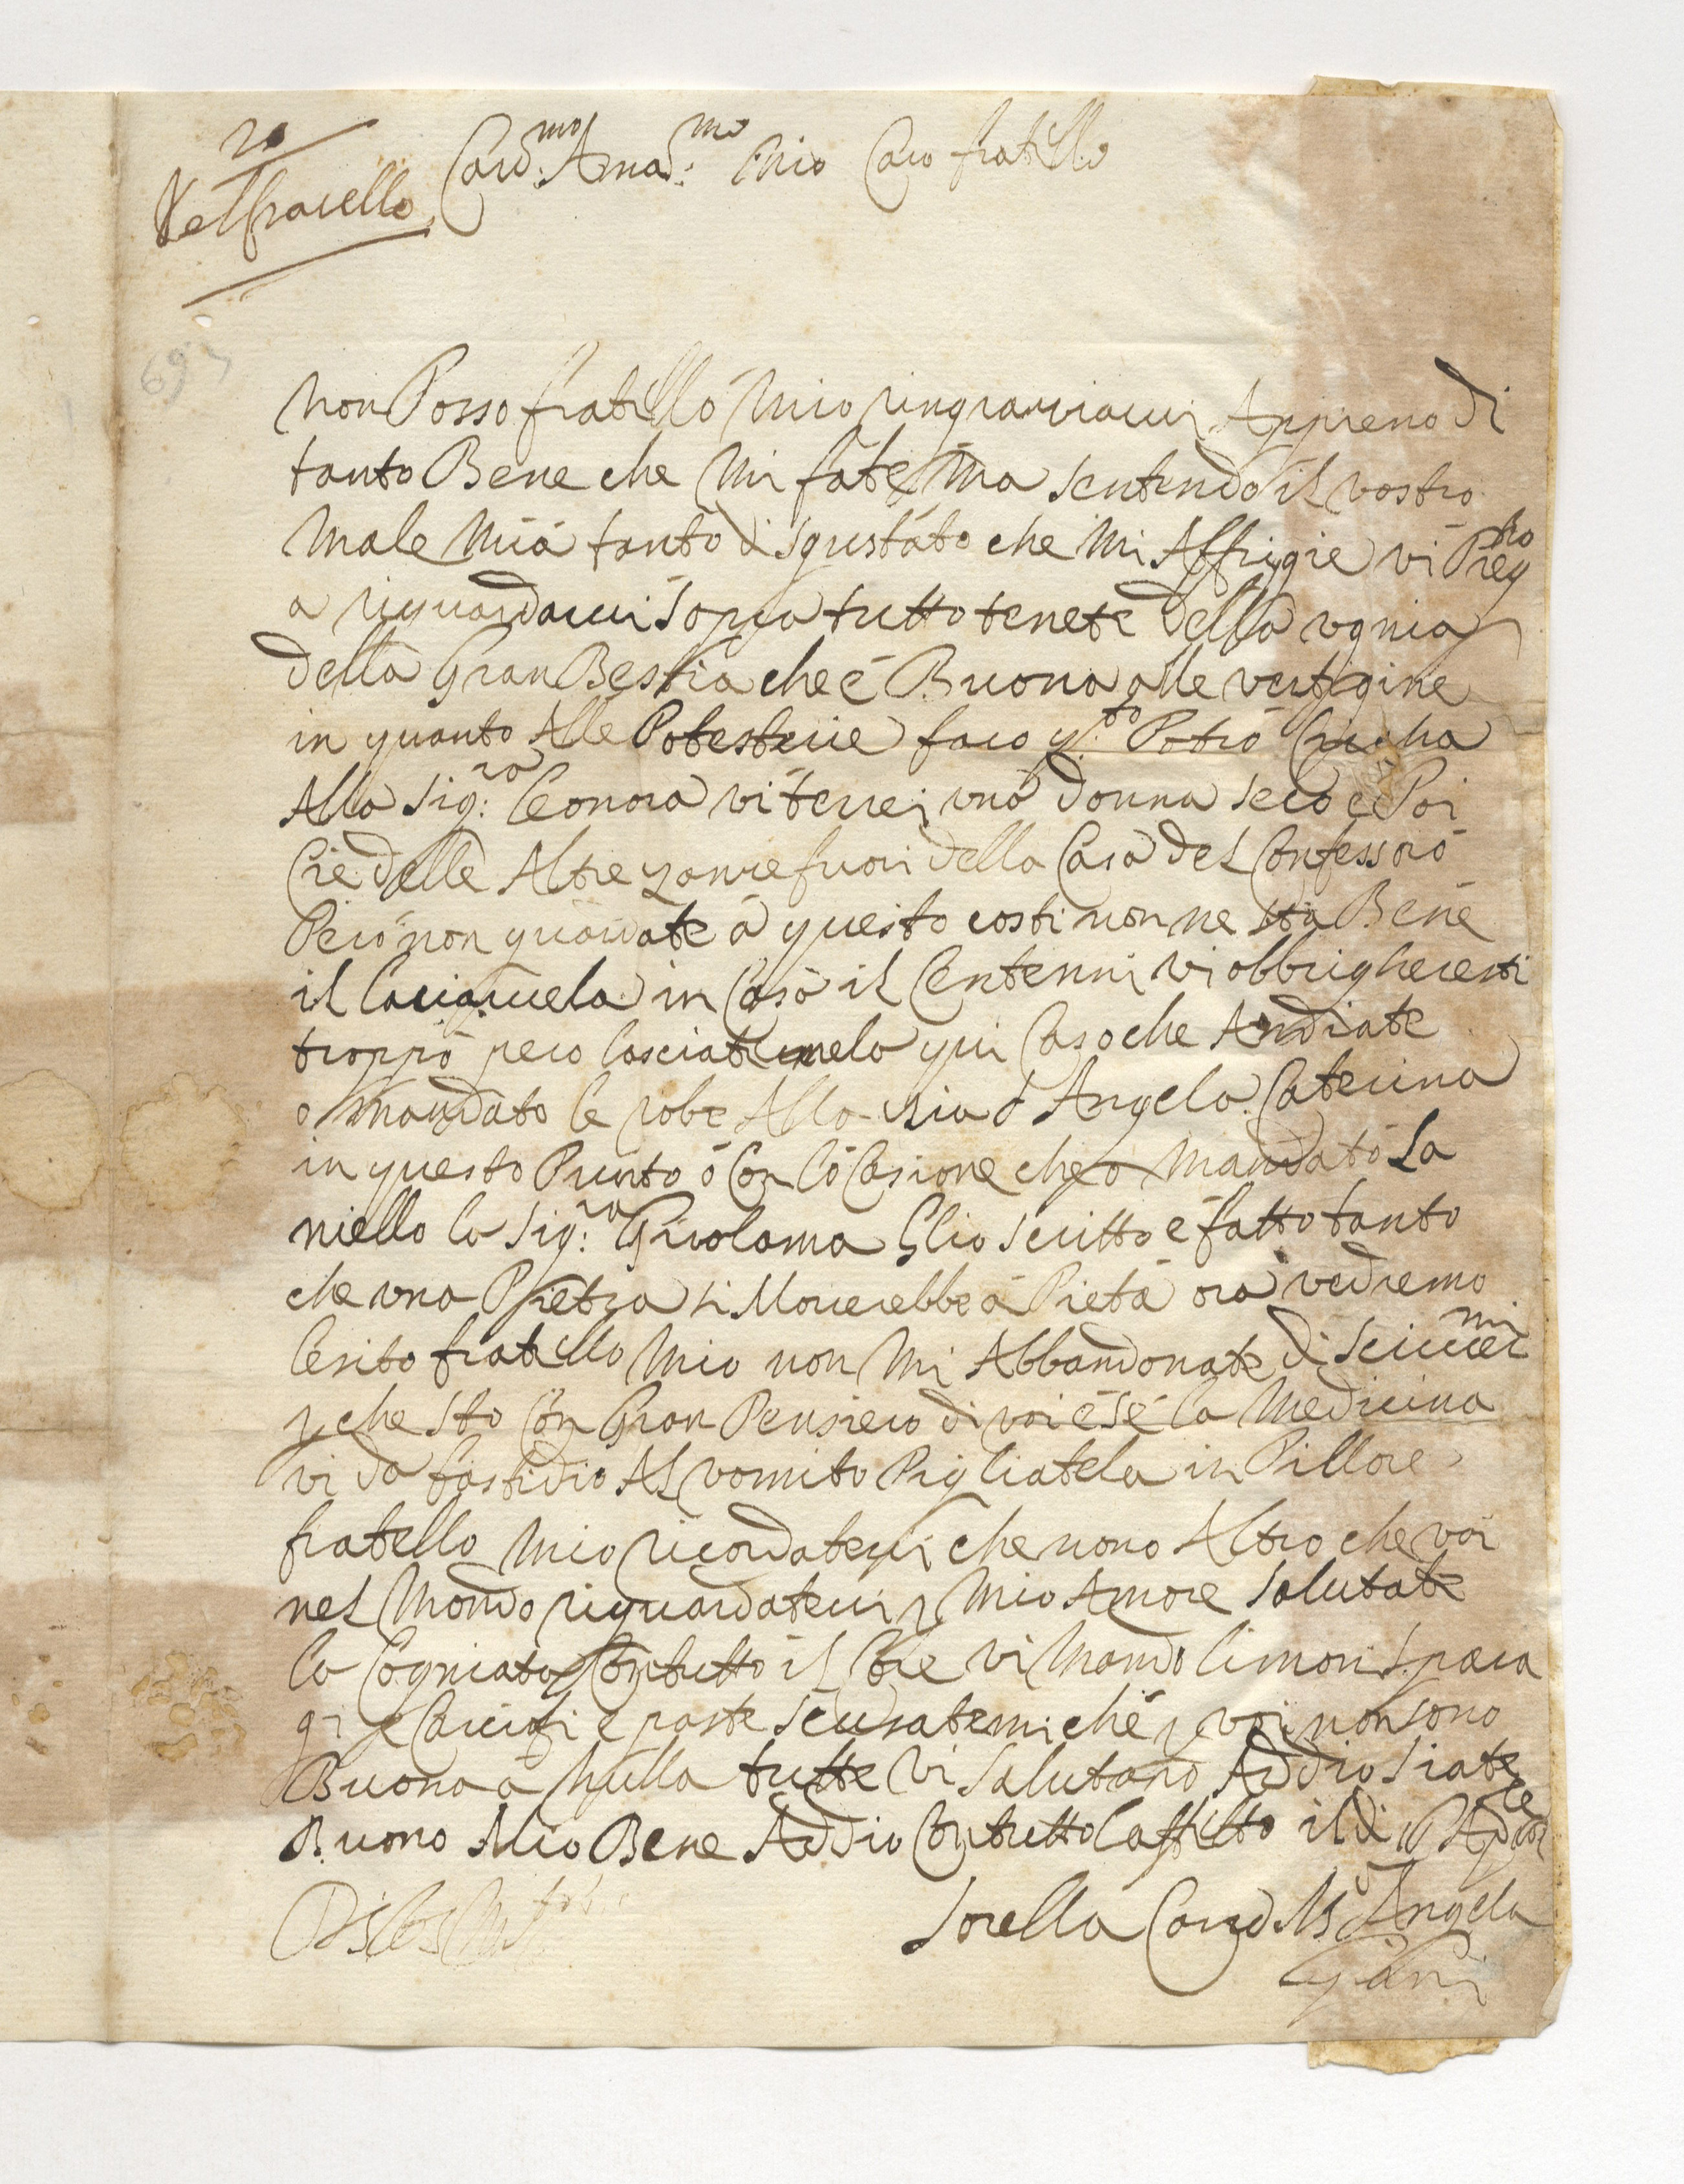 20
Card:mo Amad:mo Mio Caro fratello
693
Non Posso fratello Mio ringranziarvi Appieno di
tanto Bene che Mi fate Ma sentendo il vostro
Male Mià tanto disgustato che Mi Affrigie vi Prego
a riguardarvi sopra tutto tenete della vgnia
della Gran Bestia che é Buona alle vertigine
in quanto Alle Potesterie faro q.to Potró
Alla Sig:ra Leonora vi terrei vna donna seco e Poi
Cie delle Altre stanze fuori della Casa del Confessoró
Peró non guardate á questo costi non ne sta Bene
il in Casa il Centenni vi obbrigheresti
troppó pero lasciatemelo qui Caso che Andiate
o mandato le robe Alla d Angela Caterina
in questo Punto ó Con lóCasione che o Mandató La
niello la Sig:ra Girolama Glio scritto é fatto tanto
che vna Pietra si Moverebbe á Pietá ora vedremo
lesito fratello Mio non Mi Abbandonate di scrivermi
p che sto Con Gran Pensiero di voi é sé la Medicina
vi da fastidio Al vomito Pigliatela in Pillore
fratello Mio ricordatevi che nono Altro che voi
nel Mondo riguardatevi p Mio Amore salutate
la Cogniata Con tutto il Core vi Mando limoni spara
gi e Carciofi e paste scusatemi ché p voi non sono
Buona á Nulla tutte vi salutano Addio siate
Buono Mio Bene Addio Con tutto laffetto il di 10 Aprile
Sorella Card M: Angela